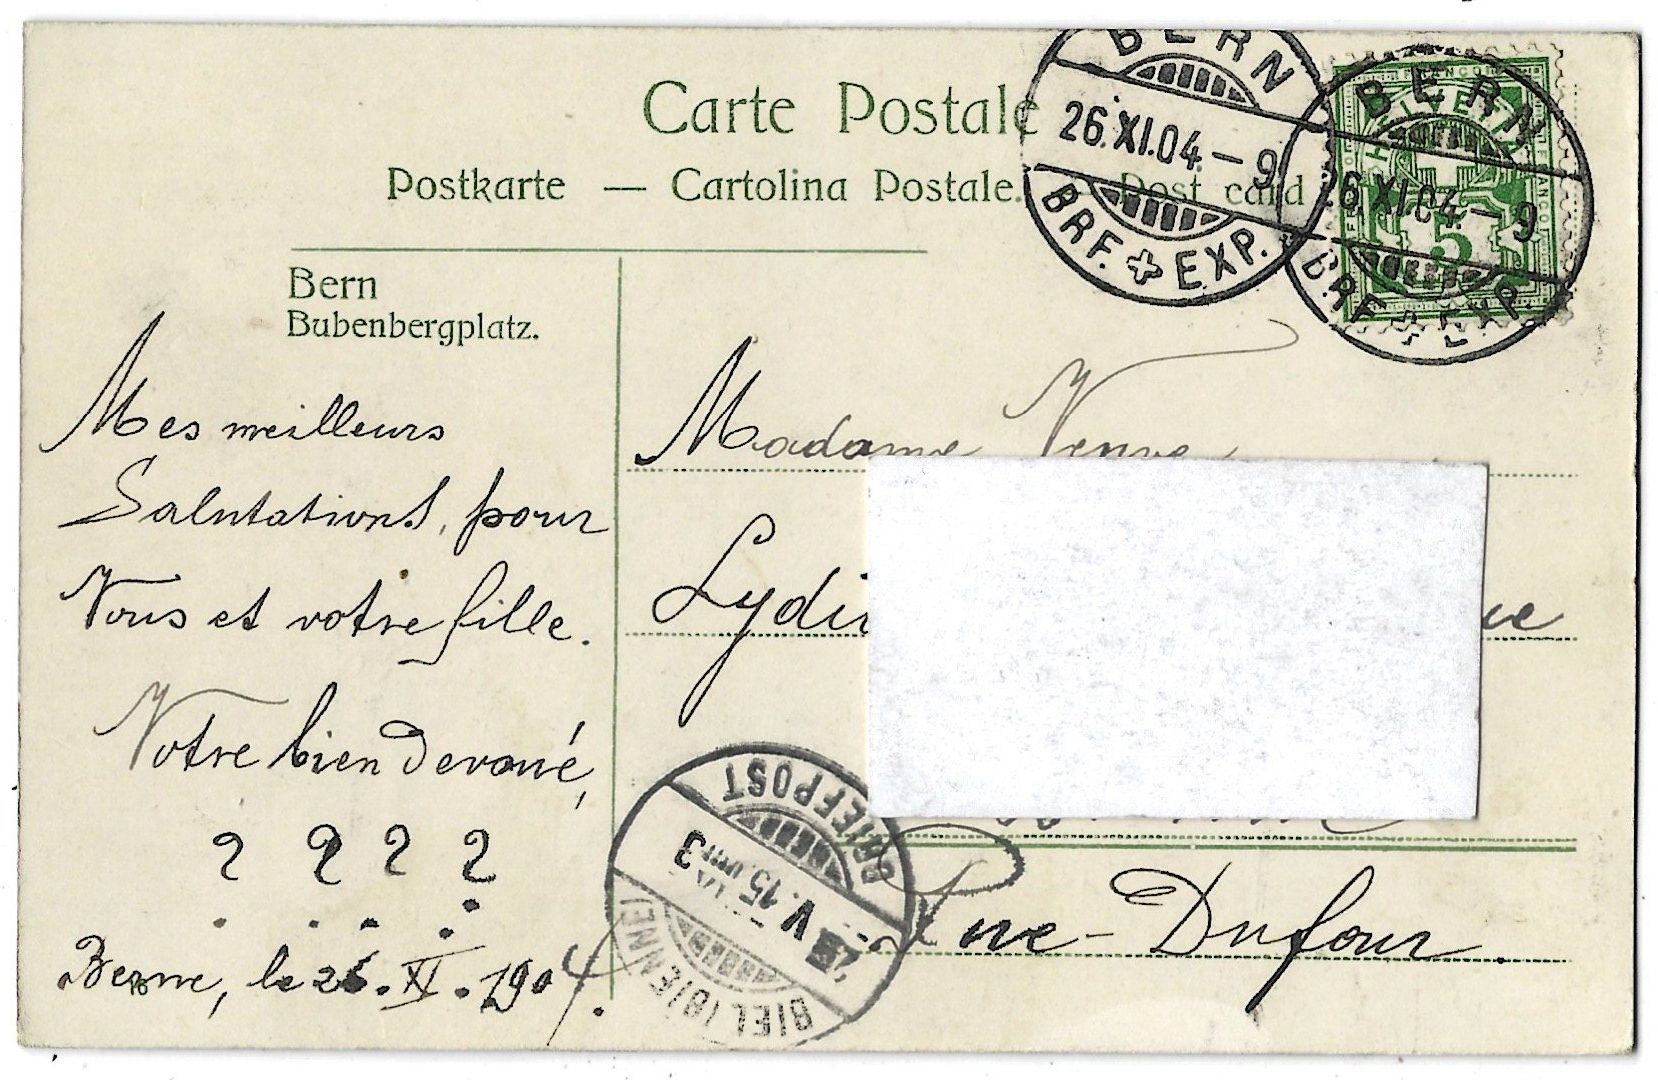 Carte Postale
Postkarte — Cartolina Postale. — Post card
BERN
26.XI.04.-9
BRF. EXP.
BERN
26.XI.04.-9
BRF. EXP.
FRANCO
HELVETIA
5
Bern
Bubenbergplatz.
Mes meilleurs
Salutations, pour
Vous et votre fille.
Votre bien devoué,
? ? ? ?
Berne, le 26. XI. 1904.
Madame Veuve
Lydi
ue
Rue-Dufour.
BRIEFPOST
V. 15. 3
BIEL (BIENNE)